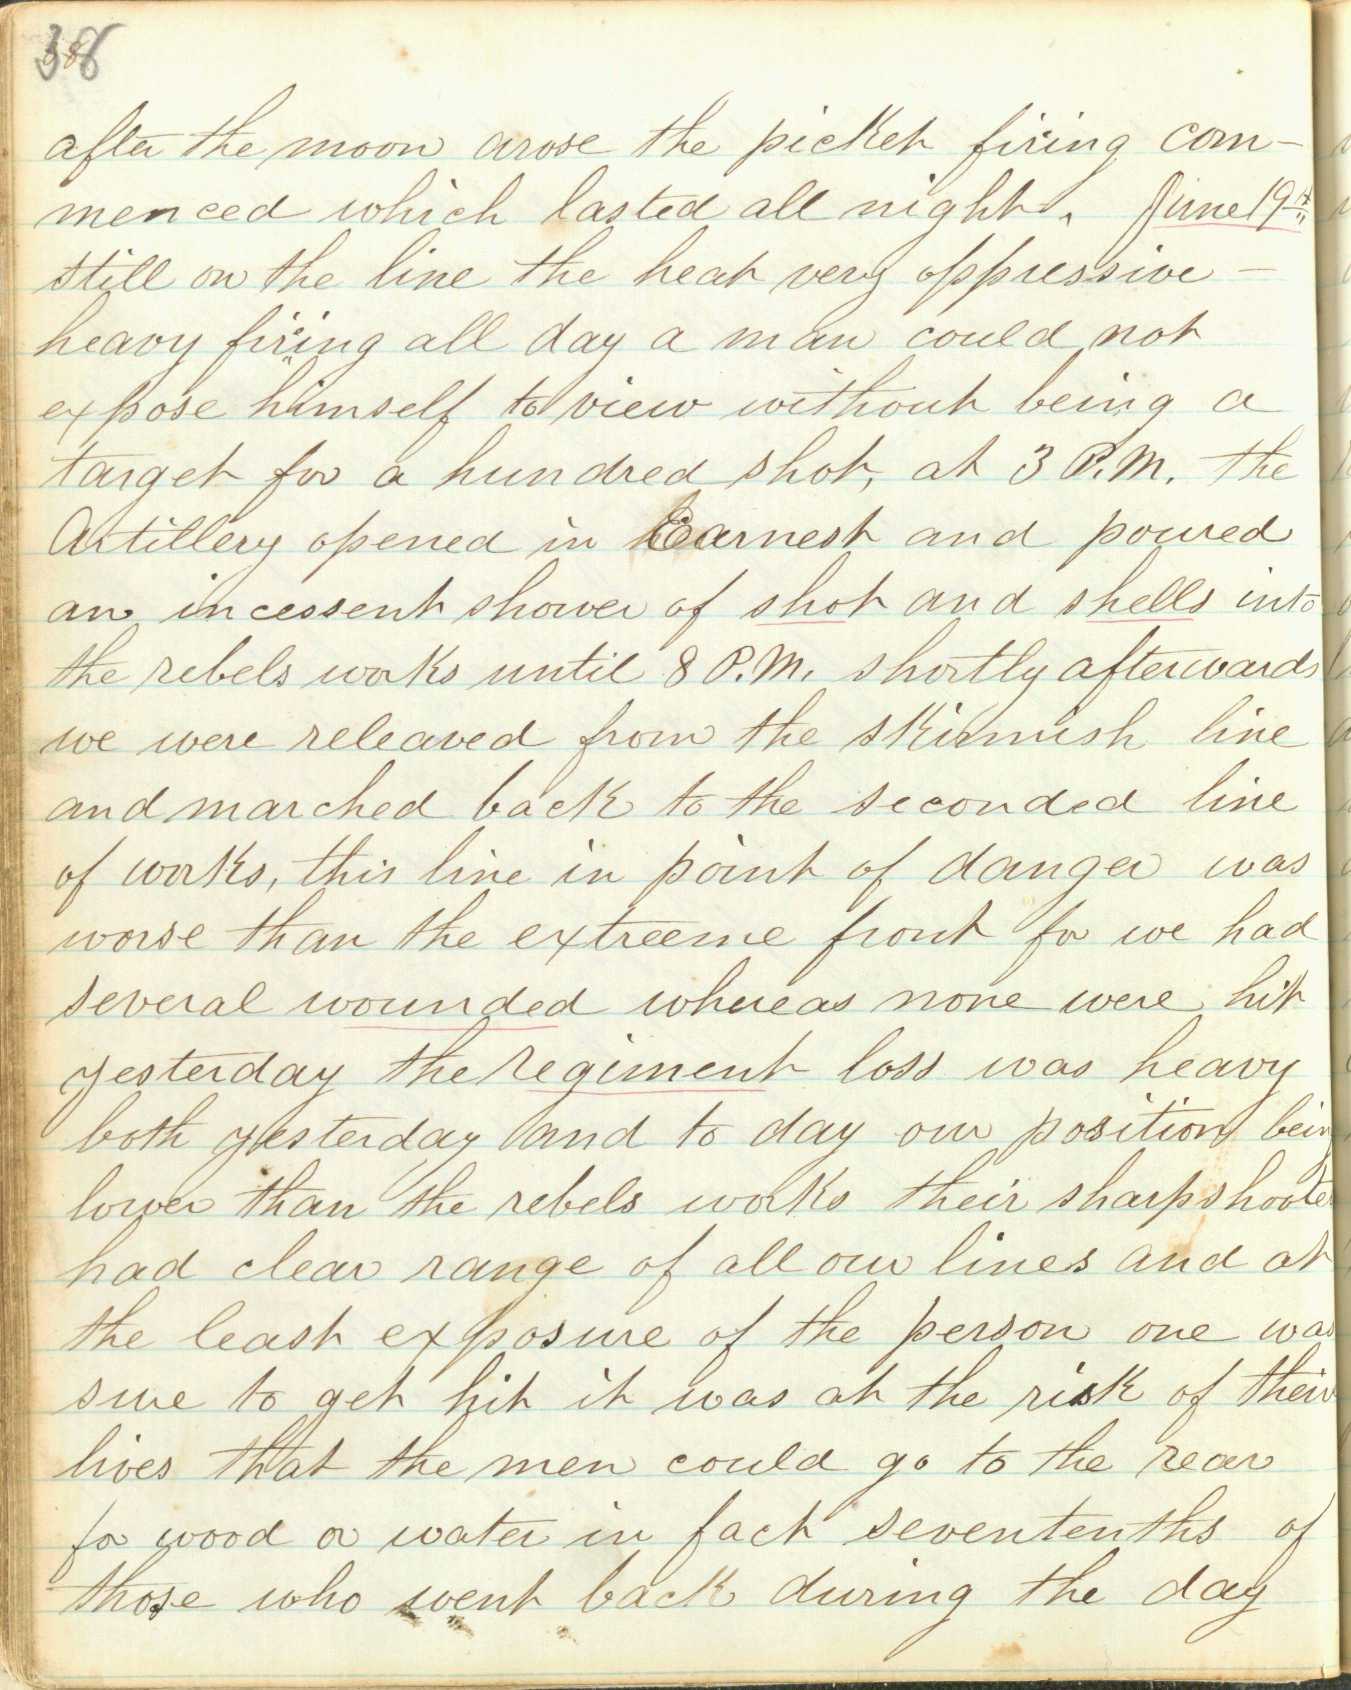 38
after the moon arose the picket firing com-
menced which lasted all night. June 19th
still on the line the heat very oppressive -
heavy firing all day a man could not
expose himself to view without being a
target for a hundred shot, at 3 P.M. the
Artillery opened in Earnest and poured
an incessent shower of shot and shells into
the rebels works until 8 P.M. shortly afterwards
we were releaved from the skirmish line
and marched back to the seconded line
of works, this line in point of danger was
worse than the extreeme front for we had
several wounded whereas none were hit
yesterday the regiment loss was heavy
both yesterday and to day our position being
lower than the rebels works their sharpshooters
had clear range of all our lines and at
the least exposure of the person one was
sure to get hit it was at the risk of their
lives that the men could go to the rear
for wood or water in fact seventenths of
those who went back during the day